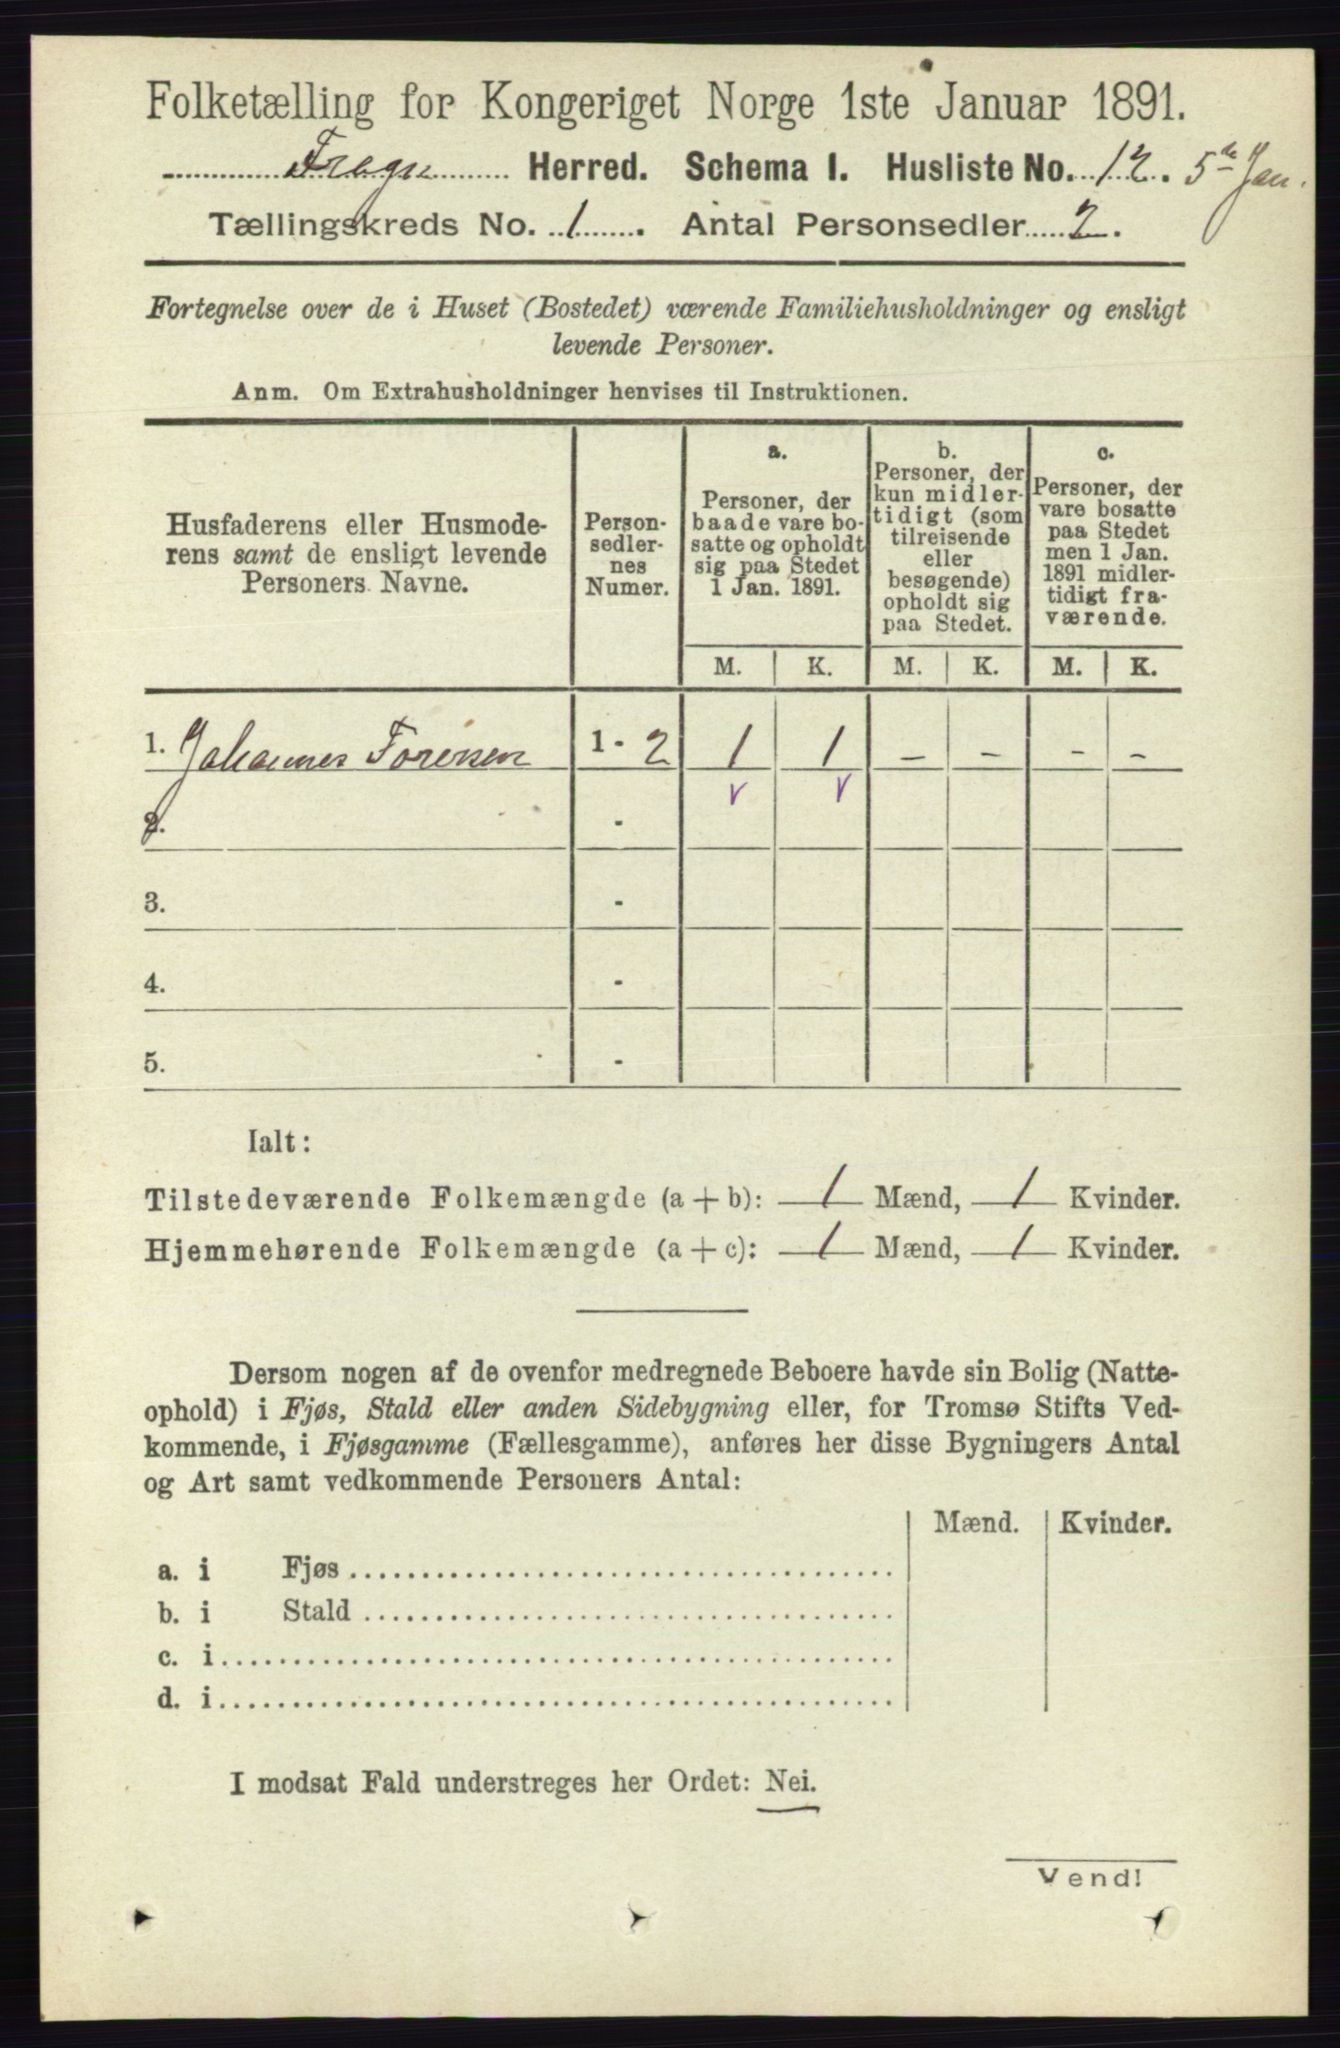 Folketælling for Kongeriget Norge 1ste Januar 1891.
Frogn Herred. Schema I. Husliste No. 12. 5de Jan.
Tællingskreds No. 1. Antal Personsedler 2.
Fortegnelse over de i Huset (Bostedet) værende Familiehusholdninger og ensligt
levende Personer.
Anm. Om Extrahusholdninger henvises til Instruktionen.
Husfaderens eller Husmode-
rens samt de ensligt levende
Personers Navne.
Person-
sedler-
nes
Numer.
a.
Personer, der
baade vare bo-
satte og opholdt
sig paa Stedet
1 Jan. 1891.
b.
Personer, der
kun midler-
tidigt (som
tilreisende
eller
besøgende)
opholdt sig
paa Stedet.
c.
Personer, der
vare bosatte
paa Stedet
men 1 Jan.
1891 midler-
tidigt fra-
værende.
M. K. M. K. M. K.
1. Johannes Torersen 1 - 2 1 1 - - - -
2. -
3. -
4. -
5. -
Ialt:
Tilstedeværende Folkemængde (a + b): 1 Mænd, 1 Kvinder.
Hjemmehørende Folkemængde (a + c): 1 Mænd, 1 Kvinder.
Dersom nogen af de ovenfor medregnede Beboere havde sin Bolig (Natte-
ophold) i Fjøs, Stald eller anden Sidebygning eller, for Tromsø Stifts Ved-
kommende, i Fjøsgamme (Fællesgamme), anføres her disse Bygningers Antal
og Art samt vedkommende Personers Antal:
Mænd. Kvinder.
a. i Fjøs
b. i Stald
c. i
d. i
I modsat Fald understreges her Ordet: Nei.
Vend!